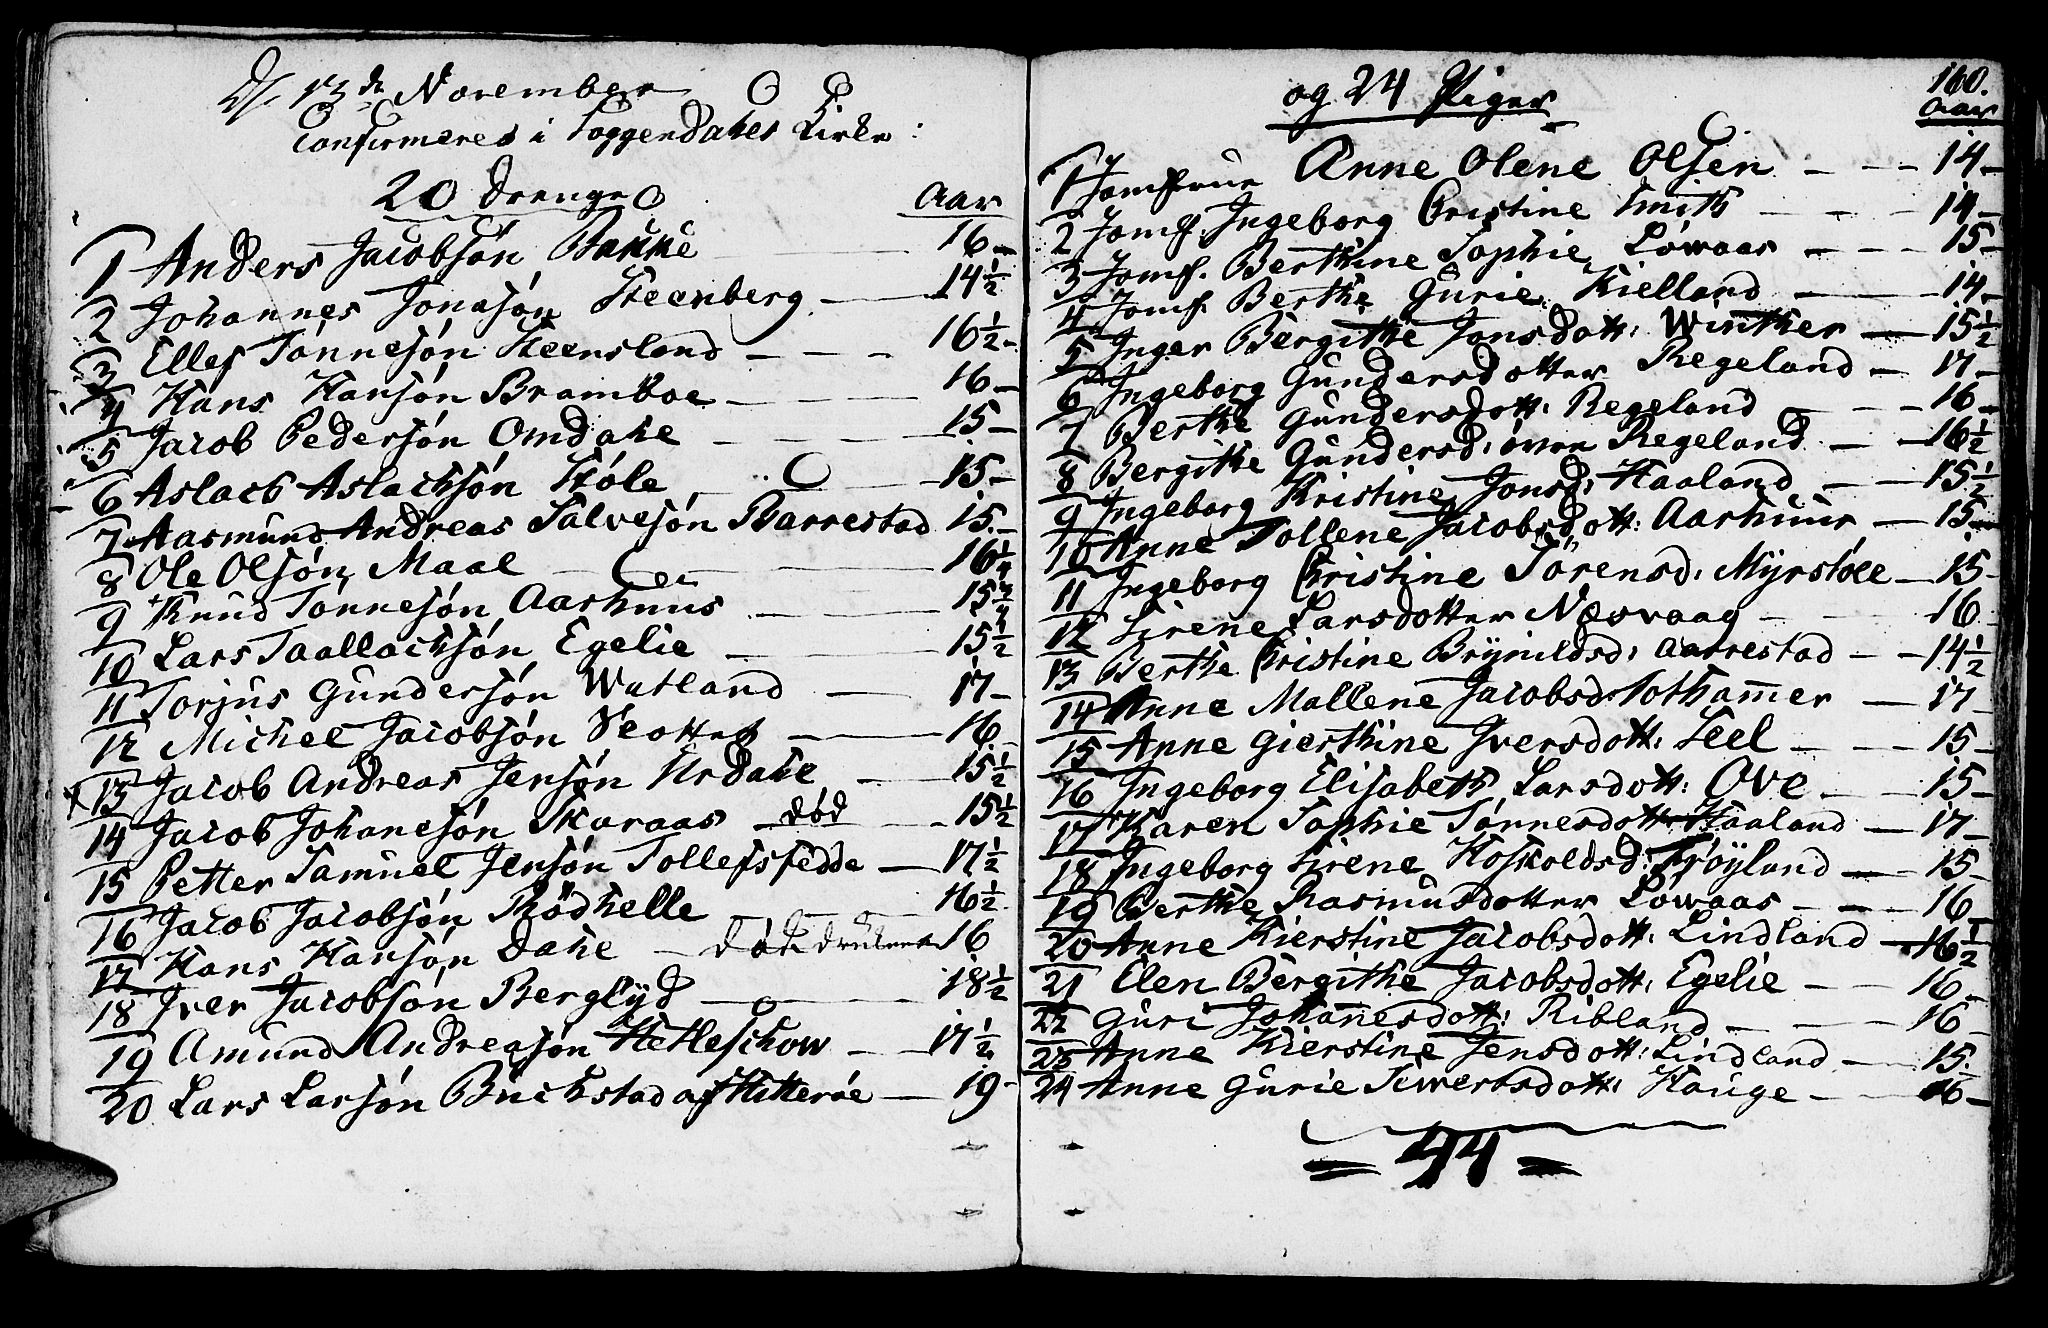 D. 13de November
Confirmeret i Soggendahls Kirke:
20 Drenge
Aar
1 Anders Jacobsøn Bakke — 16 —
2 Johannes Jonasøn Steenberg — 14½
3 Ellef Tønnesøn Steensland — 16½ —
4 Hans Hansøn Bramboe — 16 —
5 Jacob Pedersøn Omdahl — 15 —
6 Aslach Aslachsøn Støle — 15 —
7 Aasmund Andreas Salvesøn Barrestad 15. —
8 Ole Olsøn Maal — 16¼
9 Knud Tønnesøn Aarhuus — 15¾
10 Lars Taallachsøn Egelie — 15½
11 Torjus Gundersøn Watland — 17 —
12 Michel Jacobsøn — 16
13 Jacob Andreas Jensøn Urdahl — 15½
14 Jacob Johanesøn Skaraas — død — 15½
15 Petter Samuel Jensøn Tollefsfedde — 17½
16 Jacob Jacobsøn Rødhelle — 16½
17 Hans Hansøn Dahl — død 16
18 Iver Jacobsøn Berglyd — 18½
19 Amund Andreasøn Hetleschow — 17½
20 Lars Larsøn Buchstad af Hitterøe — 19 —
160.
og 24 Piger
Aar
1 Jomfrue Anne Olene Olsen — 14 —
2 Jomf. Ingeborg Christine Smith — 14 —
3 Jomf. Berthine Sophie Løwaas — 15 —
4 Jomf. Berthe Gurie Kielland — 14 —
5 Inger Bergithe Jonsdott: Winther — 15½
6 Ingeborg Gundersdotter Regeland — 17 —
7 Berthe Gundersdott: Regeland — 16 —
8 Bergithe Gundersd: øvre Regeland — 16½
9 Ingeborg Kristine Jonsd: Haaland — 15½
10 Anne Tollene Jacobsdott: Aarhuus — 15 —
11 Ingeborg Christine Sørensd: Myrstøle — 15 —
12 Sirene Larsdotter Næsvaag — 16
13 Berthe Christine Brynildsd: Aarrestad — 14½
14 Anne Mallene Jacobsd: Tothamer — 17
15 Anne Gierthine Iversdott: Leel — 15 —
16 Ingeborg Elisabeth Larsdott: Ove — 15 —
17 Karen Sophie Tønnesdott: Haaland — 17 —
18 Ingeborg Sirene Hoskoldsd: Frøyland — 15 —
19 Berthe Rasmusdotter Løwaas — 16
20 Anne Kierstine Jacobsdott: Lindland — 16½
21 Elen Bergithe Jacobsdott: Egelie — 16 —
22 Guri Johannesdott: Ribland — 16 —
23 Anne Kierstine Jensdott: Lindland — 15.
24 Anne Gurie Siwertsdott: Hauge — 16 —
= 44 =